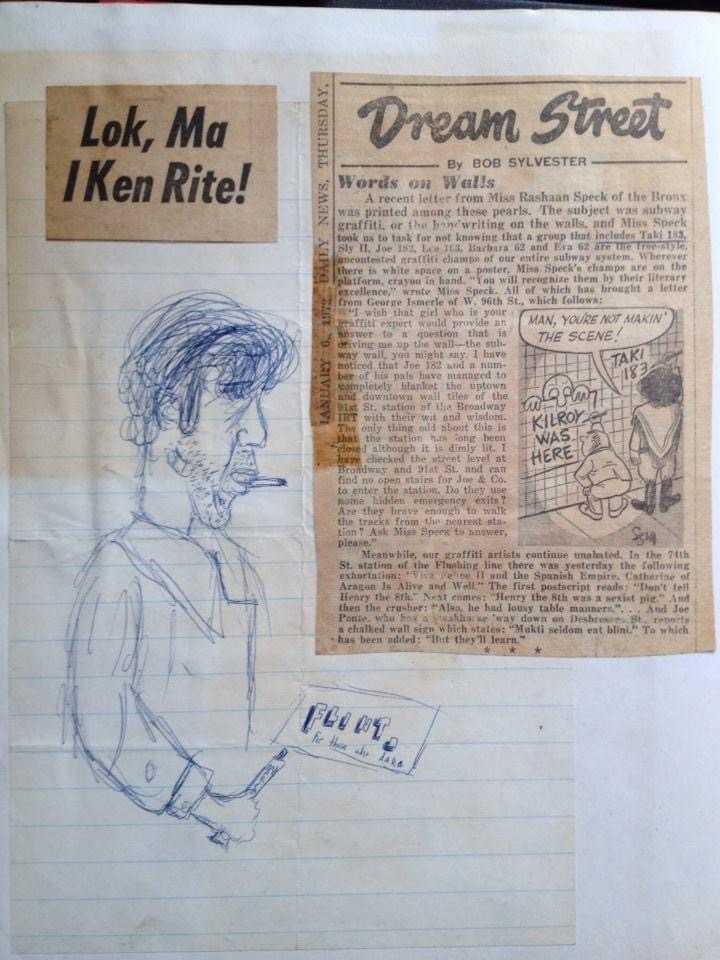 Lok, Ma
I Ken Rite!
JANUARY 6, 1972 DAILY NEWS, THURSDAY,
Dream Street
By BOB SYLVESTER
Words on Walls
A recent letter from Miss Rashaan Speck of the Bronx
was printed among these pearls. The subject was subway
graffiti, or the handwriting on the walls, and Miss Speck
took us to task for not knowing that a group that includes Taki 183,
Sly II, Joe 182, Lee 163, Barbara 62 and Eva 62 are the free-style,
uncontested graffiti champs of our entire subway system. Wherever
there is white space on a poster, Miss Speck's champs are on the
platform, crayon in hand. "You will recognize them by their literary
excellence," wrote Miss Speck. All of which has brought a letter
from George Ismerle of W. 96th St., which follows:
"I wish that girl who is your
graffiti expert would provide an
answer to a question that is
driving me up the wall—the sub-
way wall, you might say. I have
noticed that Joe 182 and a num-
ber of his pals have managed to
completely blanket the uptown
and downtown wall tiles of the
91st St. station of the Broadway
IRT with their wit and wisdom.
The only thing odd about this is
that the station has long been
closed although it is dimly lit. I
have checked the street level at
Broadway and 91st St. and can
find no open stairs for Joe & Co.
to enter the station. Do they use
some hidden emergency exits?
Are they brave enough to walk
the tracks from the nearest sta-
tion? Ask Miss Speck to answer,
please."
MAN, YOU'RE NOT MAKIN'
THE SCENE!
TAKI
183
KILROY
WAS
HERE
Meanwhile, our graffiti artists continue unabated. In the 74th
St. station of the Flushing line there was yesterday the following
exhortation: "Viva Feline II and the Spanish Empire. Catherine of
Aragon Is Alive and Well." The first postscript reads: "Don't tell
Henry the 8th." Next comes: "Henry the 8th was a sexist pig." And
then the crusher: "Also, he had lousy table manners." . . . And Joe
Ponte, who has a steakhouse 'way down on Desbrosses St., reports
a chalked wall sign which states: "Mukti seldom eat blini." To which
has been added: "But they'll learn."
* * *
FLINT.
For those who DARE